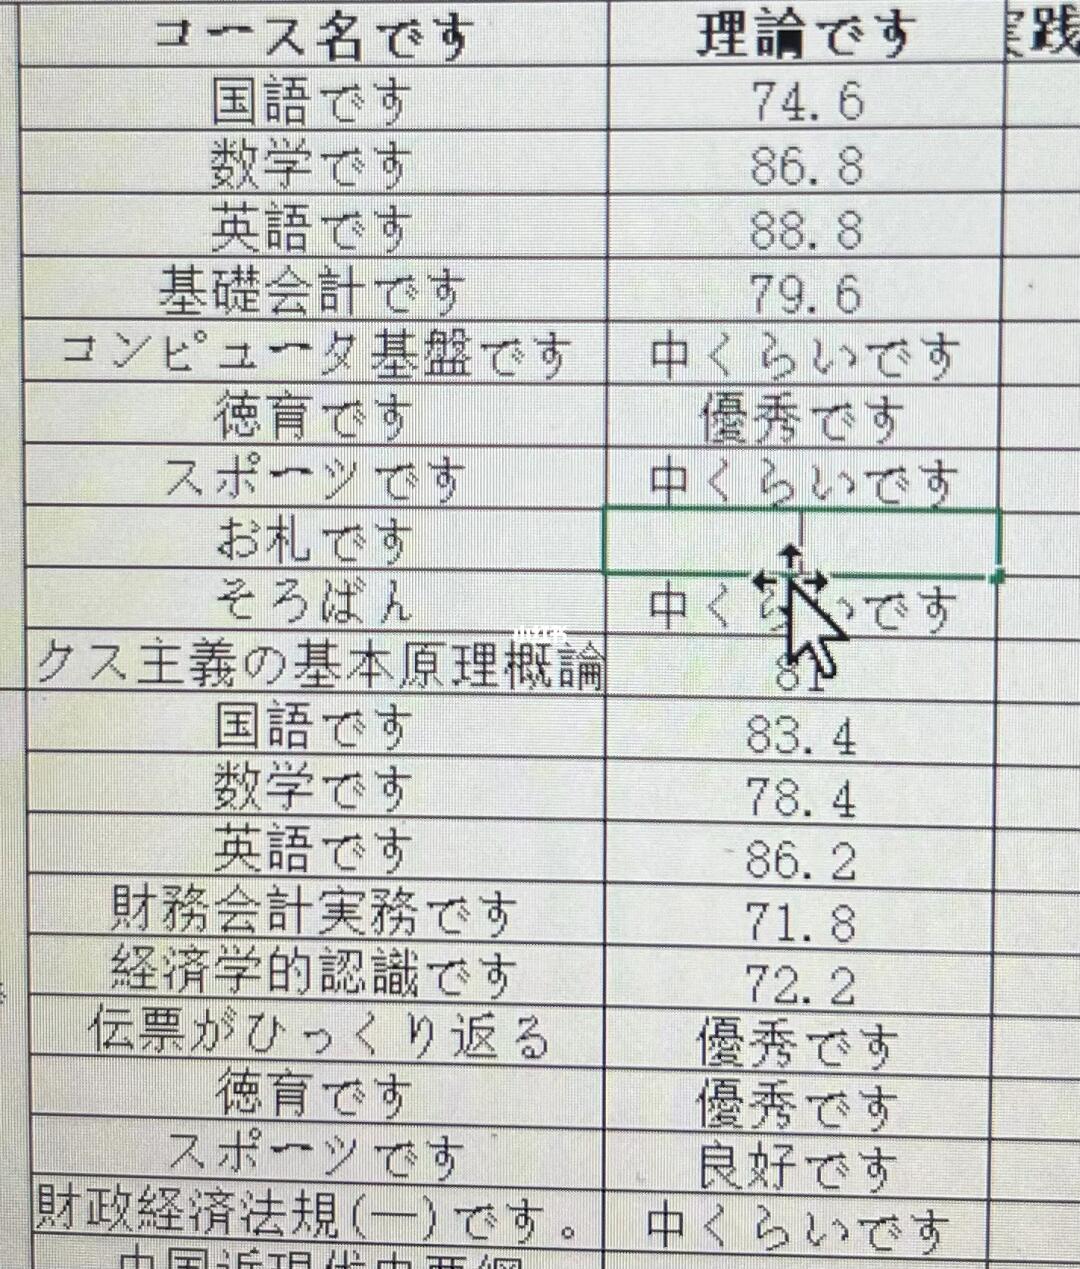 コース名です 理論です 実践
国語です 74.6
数学です 86.8
英語です 88.8
基礎会計です 79.6
コンピュータ基盤です 中くらいです
徳育です 優秀です
スポーツです 中くらいです
お札です
そろばん 中くらいです
クス主義の基本原理概論 81
国語です 83.4
数学です 78.4
英語です 86.2
財務会計実務です 71.8
経済学的認識です 72.2
伝票がひっくり返る 優秀です
徳育です 優秀です
スポーツです 良好です
財政経済法規(一)です。 中くらいです